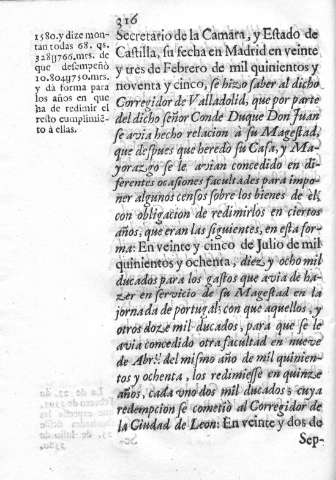 316
1580. y dize mon-
tan todas 68. qs.
328y766. mrs. de
que desempeñó
10.804y750. mrs.
y dà forma para
los años en que
ha de redimir el
resto cumplimiē-
to á ellas.
Secretario de la Camara, y Estado de
Castilla, su fecha en Madrid en veinte
y tres de Febrero de mil quinientos y
noventa y cinco, se hizo saber al dicho
Corregidor de Valladolid, que por parte
del dicho señor Conde Duque Don Juan
se avia hecho relacion à su Magestad,
que despues que heredo su Casa, y Ma-
yorazgo se le avian concedido en di-
ferentes ocasiones facultades para impo-
ner algunos censos sobre los bienes de èl,
con obligacion de redimirlos en ciertos
años, que eran las siguientes, en esta for-
ma: En veinte y cinco de Julio de mil
quinientos y ochenta, diez y ocho mil
ducados para los gastos que avia de ha-
zer en servicio de su Magestad en la
jornada de portugal; con que aquellos, y
otros doze mil ducados, para que se le
avia concedido otra facultad en nueve
de Abril del mismo año de mil quinien-
tos y ochenta, los redimiesse en quinze
años, cada vno dos mil ducados; cuya
redempcion se cometiò al Corregidor de
la Ciudad de Leon: En veinte y dos de
Sep-